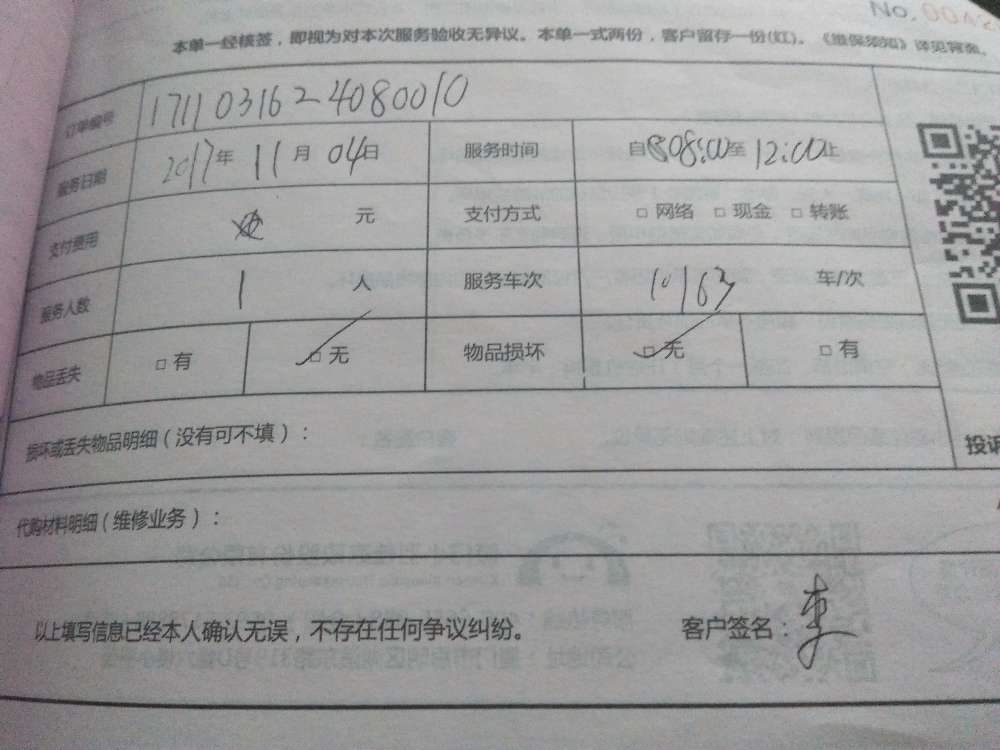 No.0042
本单一经核签，即视为对本次服务验收无异议。本单一式两份，客户留存一份(红)。《维保须知》详见背面。
订单编号 1711031624080010
服务日期 2017年 11月 04日 服务时间 自08:00至 12:00止
支付费用 元 支付方式 □ 网络 □ 现金 □ 转账
服务人数 1 人 服务车次 10163 车/次
物品丢失 □ 有 □ 无 物品损坏 □ 无 □ 有
损坏或丢失物品明细（没有可不填）：
投诉
代购材料明细（维修业务）：
以上填写信息已经本人确认无误，不存在任何争议纠纷。 客户签名：